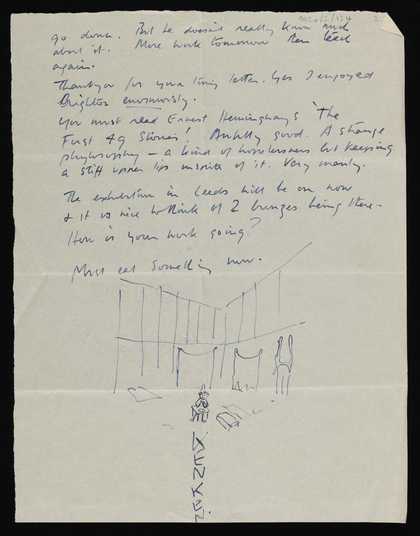 go down. But he doesn't really know much
about it. More work tomorrow then Leeds
again.
Thankyou for your long letter. Yes I enjoyed
Brighton enormously.
You must read Ernest Hemingway's 'The
First 49 Stories'! Awfully good. A strange
phylosophy – a kind of hopelessness but keeping
a stiff upper lip inspite of it. Very manly.
The exhibition in Leeds will be on now
& it is nice to think of 2 bronzes being there.
How is your work going?
Must eat something now.